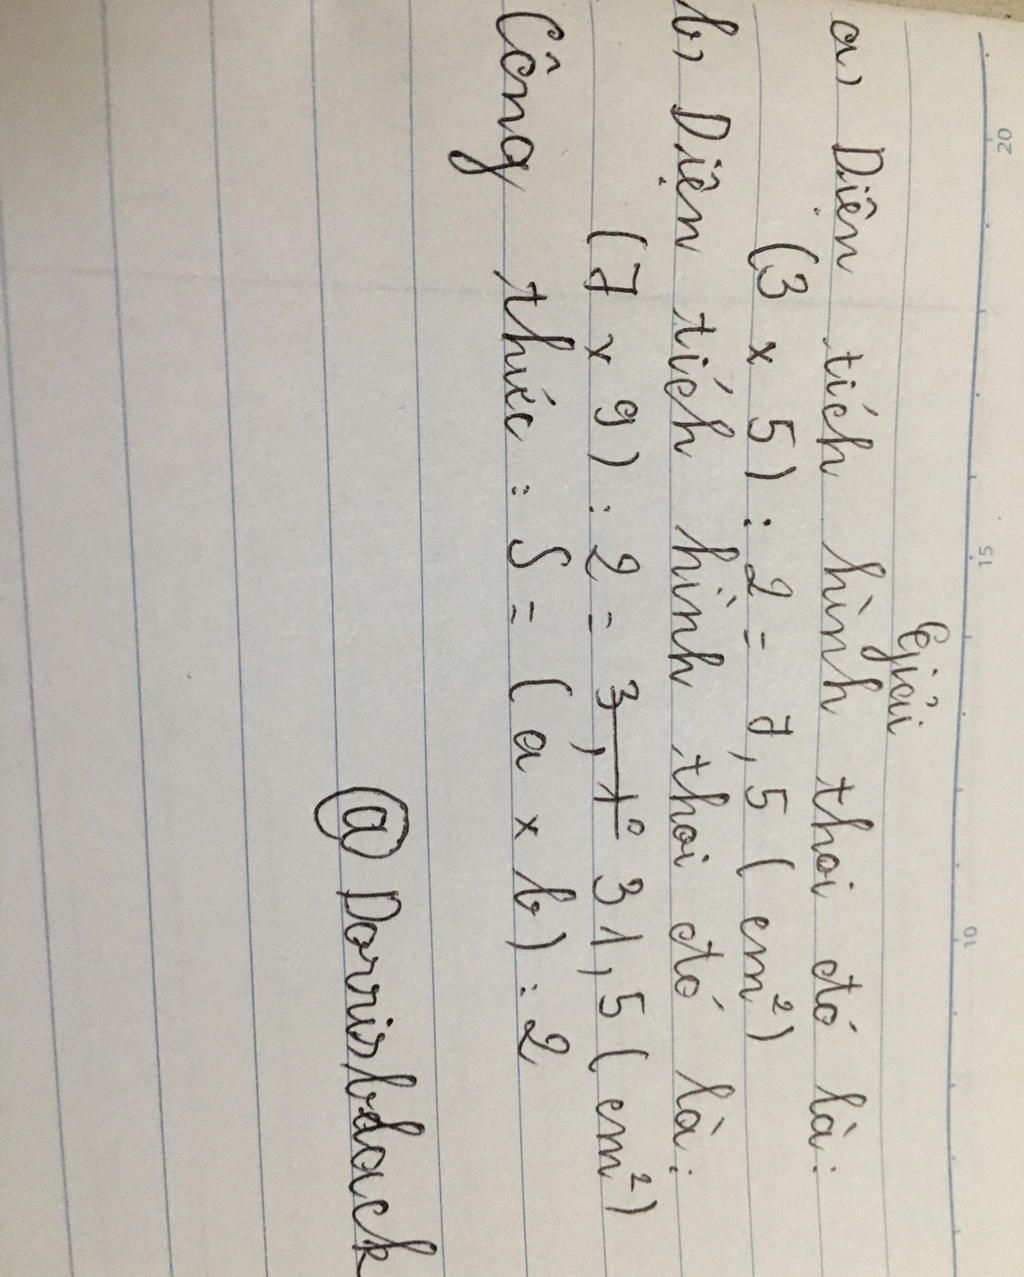 Giải
a) Diện tích hình thoi đó là:
(3 x 5) : 2 = 7,5 (cm²)
b) Diện tích hình thoi đó là:
(7 x 9) : 2 = 31,5 (cm²)
Công thức : S = (a x b) : 2
@ Dorrisbdack
20
15
10